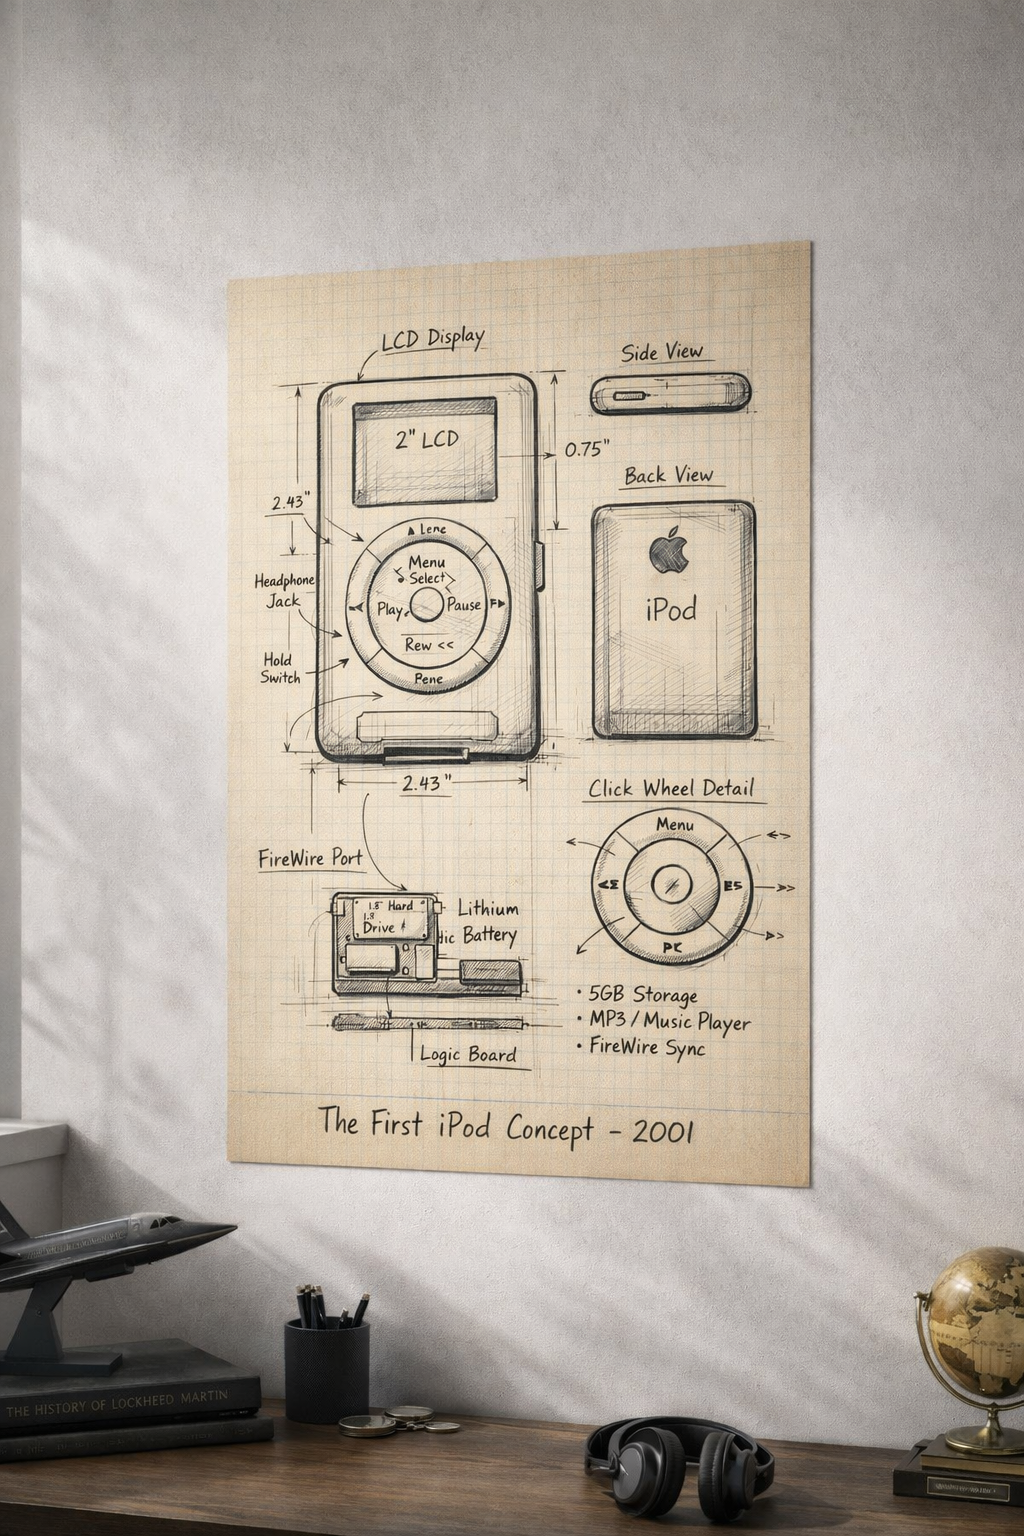 LCD Display
2" LCD
0.75"
2.43"
Headphone
Jack
Hold
Switch
▲ Lene
Menu
Select
Play
Pause
Rew <<
Pene
2.43"
Side View
Back View
iPod
Click Wheel Detail
Menu
FireWire Port
1.8" Hard
1.8
Drive
Lithium
Battery
Logic Board
• 5GB Storage
• MP3 / Music Player
• FireWire Sync
The First iPod Concept – 2001
THE HISTORY OF LOCKHEED MARTIN